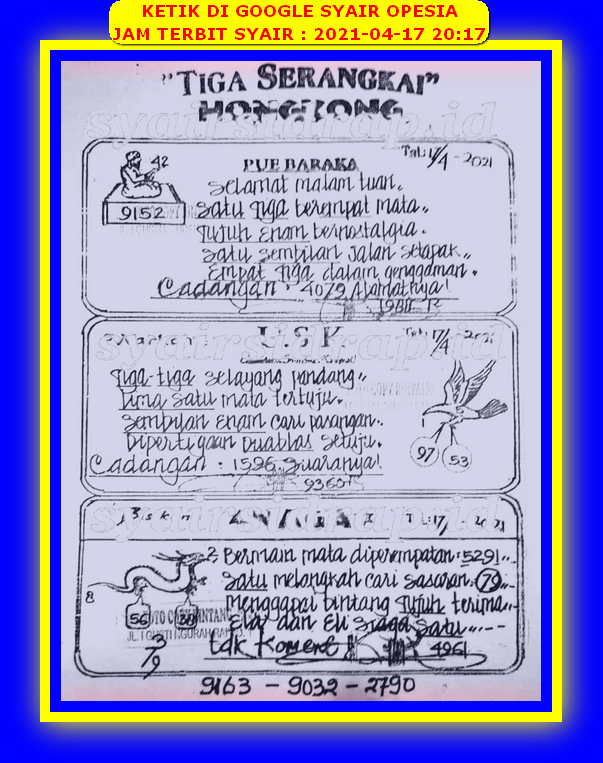 KETIK DI GOOGLE SYAIR OPESIA
JAM TERBIT SYAIR : 2021-04-17 20:17
"TIGA SERANGKAI"
HONGKONG
42
9152
PUE BARAKA
Tgl: 17/4-2021
Selamat malam tuan.
Satu Tiga berempat mata..
Tujuh Enam bernostalgia.
Satu Sembilan jalan setapak..
Empat Tiga dalam genggaman.
Cadangan : 4079 Alamatnya!
U.S.K.
Tgl: 17/4-2021
Tiga-tiga selayang pandang..
Lima Satu mata tertuju.
Sembilan Enam cari pasangan..
Dipertigaan Duablas setuju.
Cadangan : 1596 Suaranya!
97
53
17/ -2021
Bermain mata diperempatan : 5291..
Satu melangkah cari sasaran : 79..
menggapai bintang Tujuh terima..
Ela dan Eli Siaga Satu
tdk Koment!
4961
8
2
56
38
3
7
9
9163 - 9032 - 2790